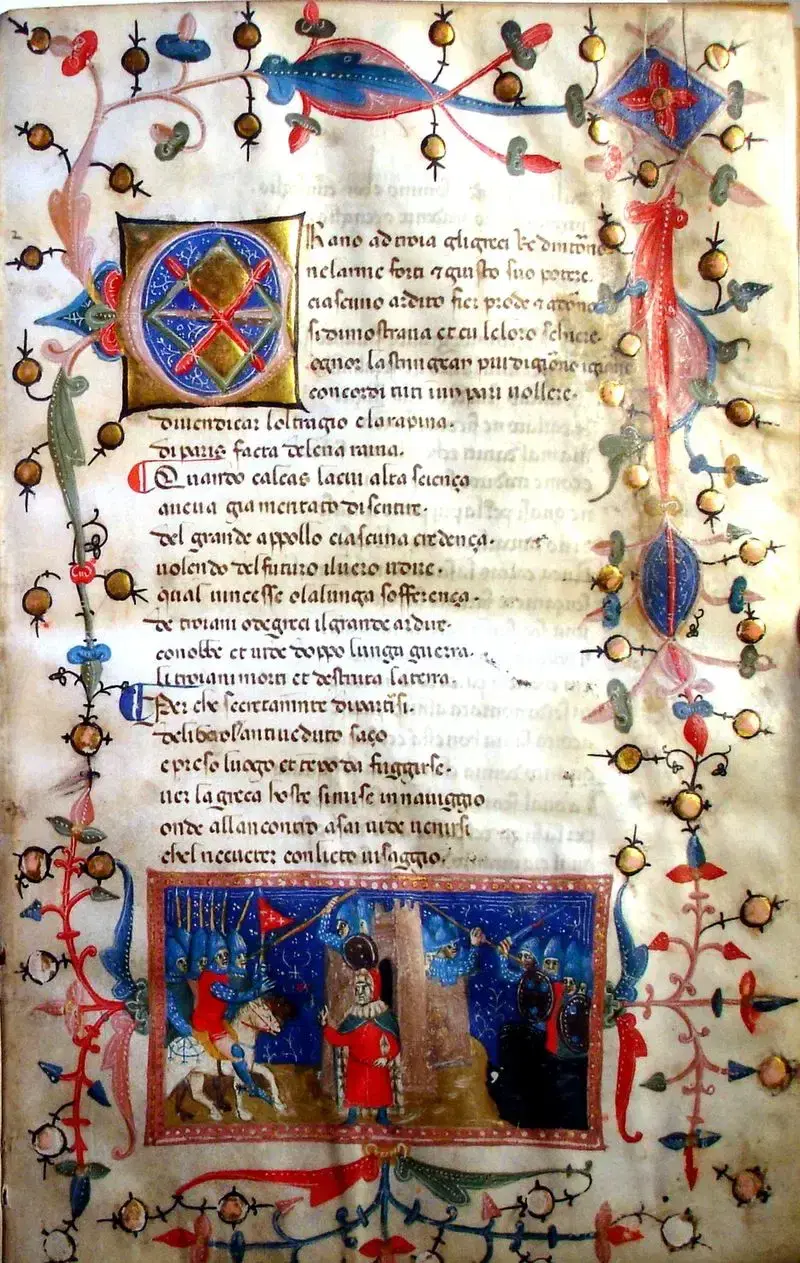 ERano ad troia gligreci Re dintōno
nelarme forti ⁊ giusto suo potere.
ciascuno ardito fier prode ⁊ adōno
sidimostraua et cū leloro schiere.
ognor lastringean piu digiōno īgiōno
concordi tuti inun pari uollere.
diuendicar loltragio elarapina.
diparis facta delena raina.
Quando calcas lacui alta sciença
aueua gia mentato disentire.
del grande appollo ciascuna credença.
uolendo delfuturo iluero udire.
qual uincesse olalunga sofferença.
de troiani odegreci ilgrande ardire.
conobbe et uide doppo lunga guerra.
li troiani morti et destruta laterra.
Per che secretamēte dipartirsi.
deliberol antiueduto saço
epreso luogo et tēpo da fuggirse.
uer lagreca hoste simise innauiggio
onde allancontro asai uide uenirsi
chel riceueter conlieto uisaggio.